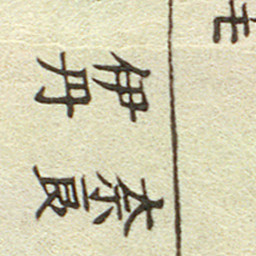 奈良
伊丹